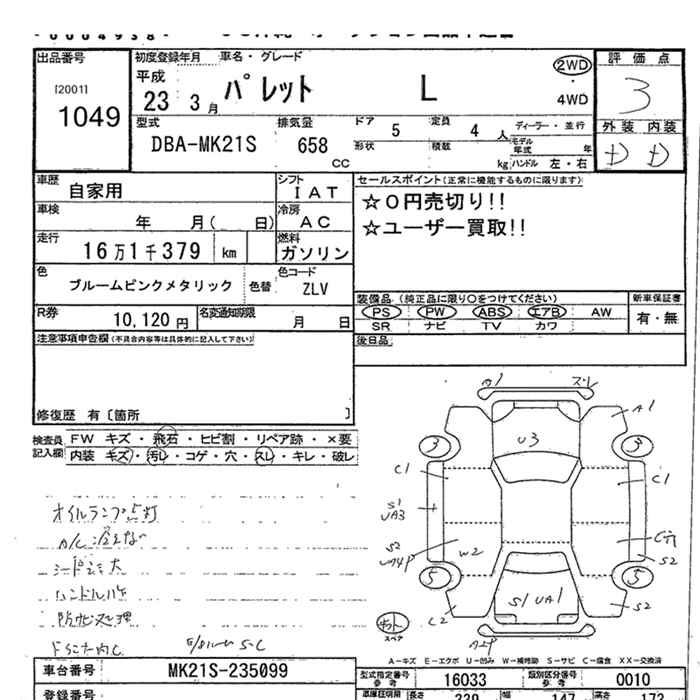 出品番号
[2001]
1049
初度登録年月 車名・グレード
平成
23 3月
パレット L
2WD
4WD
評価点
3
外装 内装
D D
型式
DBA-MK21S
排気量
658
CC
ドア 5
定員 4 人
ディーラー・並行
形状
積載 kg
モデル年式 年
ハンドル 左・右
車歴 自家用
シフト IAT
車検 年 月( 日)
冷房 AC
走行 16万1千379 km
燃料 ガソリン
色 ブルームピンクメタリック 色替
色コード ZLV
R券 10,120 円
名変通知期限 月 日
セールスポイント(正常に機能するものに限ります)
☆0円売切り!!
☆ユーザー買取!!
装備品(純正品に限り○をつけてください)
PS PW ABS エアB AW
SR ナビ TV カワ
新車保証書
有・無
後日品
注意事項申告欄(不具合内容等は具体的に記入して下さい)
修復歴 有[箇所 ]
検査員記入欄
FW キズ・飛石・ヒビ割・リペア跡・×要
内装 キズ・汚レ・コゲ・穴・スレ・キレ・破レ
オイルランプ点灯
A/C冷えない
A1 スレ
A1
U3
3 3
C1 C1
S1
UA3
S2
W2
C穴
S2
5 5
C2 S2
S1 UA1
スペア
A-キズ E-エクボ U-凹み W-補修跡 S-サビ C-腐食 XX-交換済
車台番号 MK21S-235099
型式指定番号 参考 16033
類別区分番号 参考 0010
登録番号
長さ 339 幅 147 高さ 173